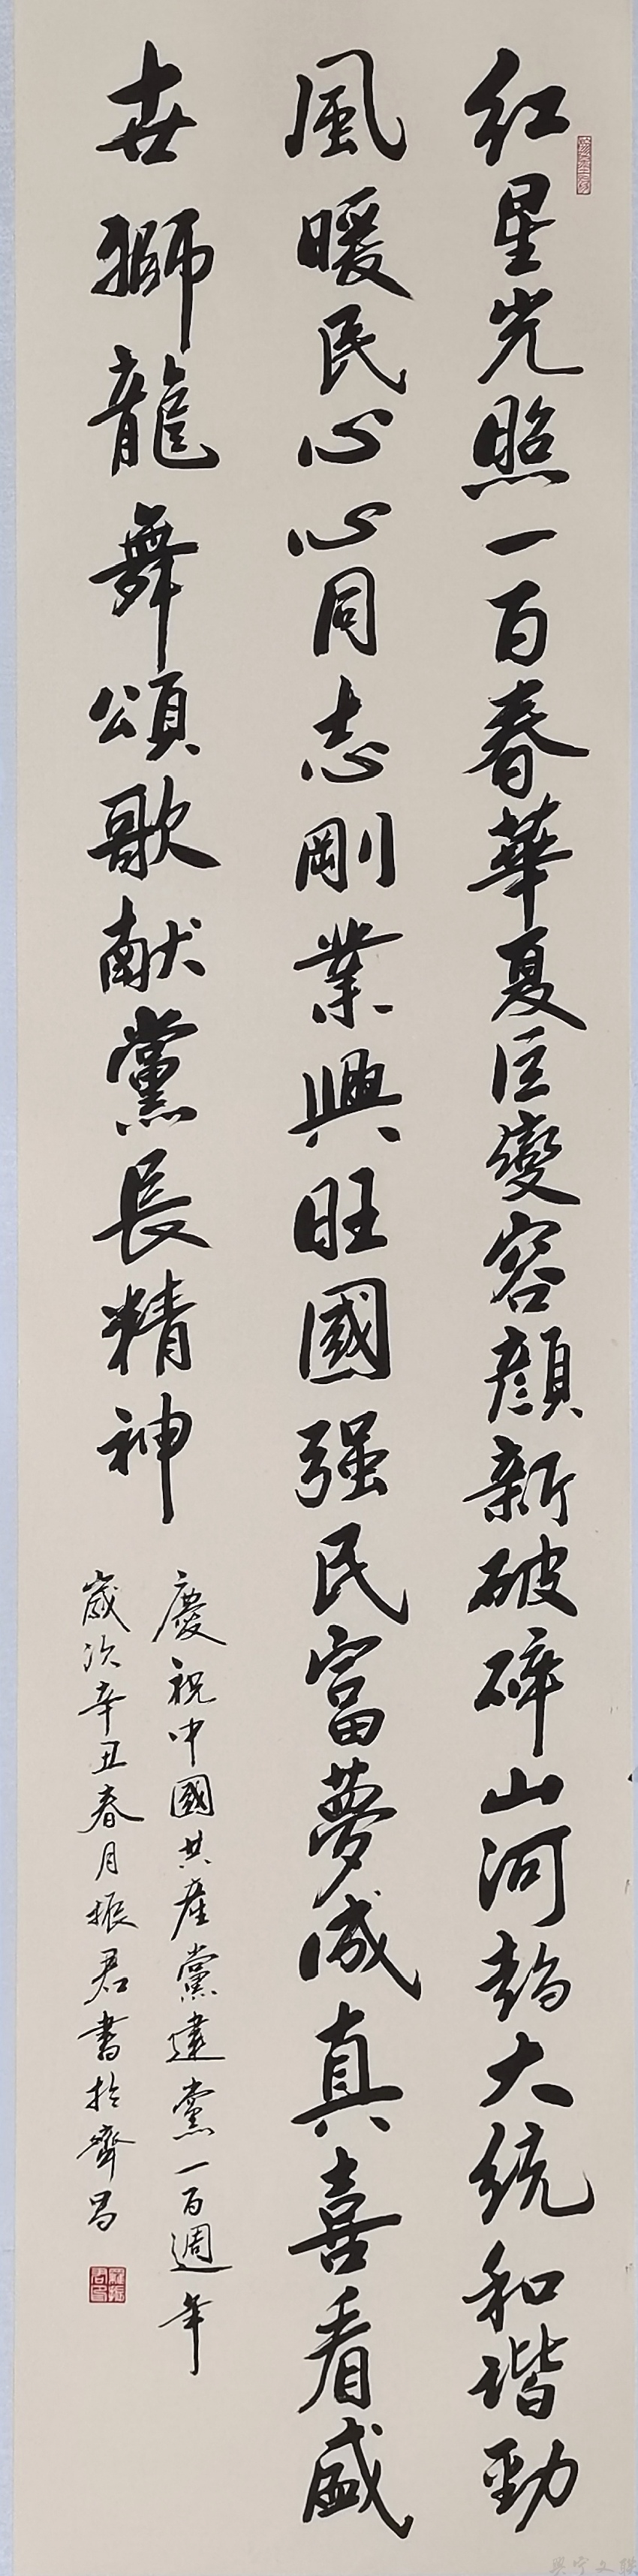 红星光照一百春華夏巨變容顔新破碎山河趋大统和谐勁
風暖民心心同志剛業興旺國强民富夢成真喜看盛
世獅龍舞頌歌献黨長精神
慶祝中國共產黨建黨一百週年
歲次辛丑春月振君書於齊昌